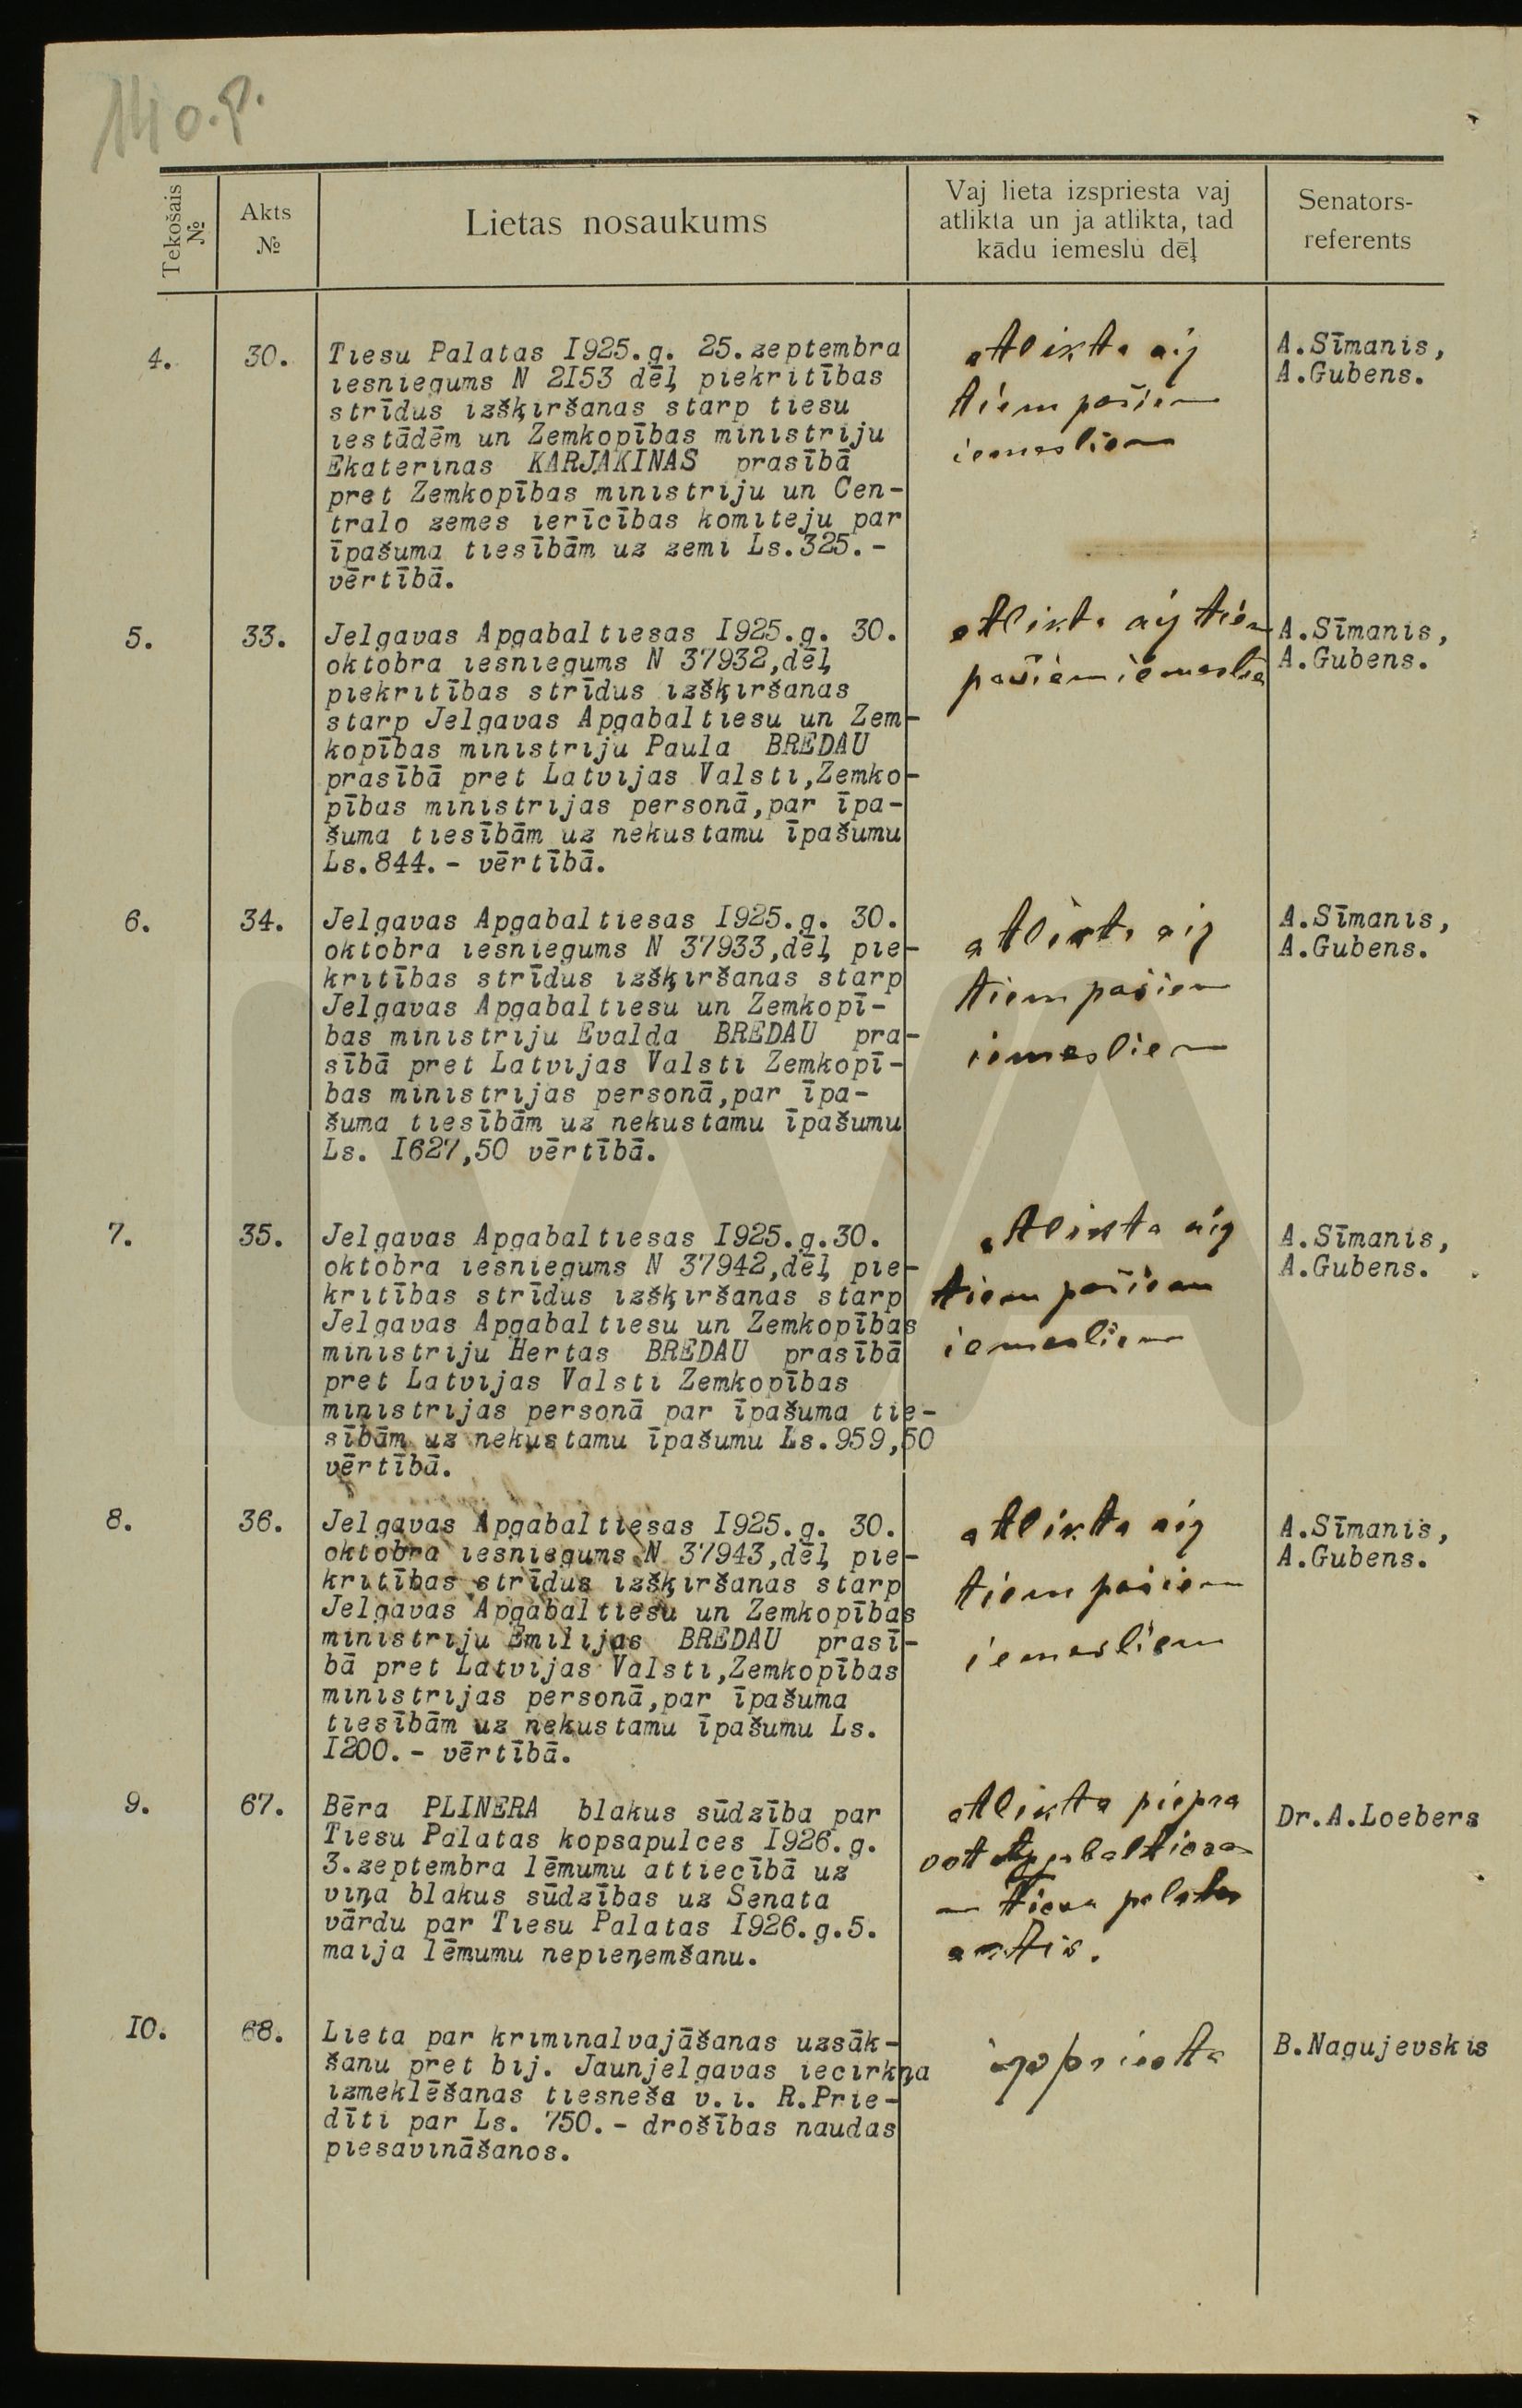 140.p.
Tekošais №
Akts №
Lietas nosaukums
Vaj lieta izspriesta vaj
atlikta un ja atlikta, tad
kādu iemeslu dēļ
Senators-
referents
4.
30.
Tiesu Palatas I925.g. 25.zeptembra
iesniegums N 2I53 dēļ piekritības
strīdus izšķiršanas starp tiesu
iestādēm un Zemkopības ministriju
Ekaterinas KARJAKINAS prasībā
pret Zemkopības ministriju un Cen-
tralo zemes ierīcības komiteju par
īpašuma tiesībām uz zemi Ls.325.-
vērtībā.
atlikta aiz
tiem pašiem
iemesliem
A.Sīmanis,
A.Gubens.
5.
33.
Jelgavas Apgabaltiesas I925.g. 30.
oktobra iesniegums N 37932,dēļ
piekritības strīdus izšķiršanas
starp Jelgavas Apgabaltiesu un Zem-
kopības ministriju Paula BREDAU
prasībā pret Latvijas Valsti,Zemko-
pības ministrijas personā,par īpa-
šuma tiesībām uz nekustamu īpašumu
Ls.844.- vērtībā.
atlikta aiz tiem
pašiem iemesliem
A.Sīmanis,
A.Gubens.
6.
34.
Jelgavas Apgabaltiesas I925.g. 30.
oktobra iesniegums N 37933,dēļ pie-
kritības strīdus izšķiršanas starp
Jelgavas Apgabaltiesu un Zemkopī-
bas ministriju Evalda BREDAU pra-
sībā pret Latvijas Valsti Zemkopī-
bas ministrijas personā,par īpa-
šuma tiesībām uz nekustamu īpašumu
Ls. I627,50 vērtībā.
atlikta aiz
tiem pašiem
iemesliem
A.Sīmanis,
A.Gubens.
7.
35.
Jelgavas Apgabaltiesas I925.g.30.
oktobra iesniegums N 37942,dēļ pie-
kritības strīdus izšķiršanas starp
Jelgavas Apgabaltiesu un Zemkopības
ministriju Hertas BREDAU prasībā
pret Latvijas Valsti Zemkopības
ministrijas personā par īpašuma tie-
sībām uz nekustamu īpašumu Ls.959,50
vērtībā.
atlikta aiz
tiem pašiem
iemesliem
A.Sīmanis,
A.Gubens.
8.
36.
Jelgavas Apgabaltiesas I925.g. 30.
oktobra iesniegums N 37943,dēļ pie-
kritības strīdus izšķiršanas starp
Jelgavas Apgabaltiesu un Zemkopības
ministriju Emilijas BREDAU prasī-
bā pret Latvijas Valsti,Zemkopības
ministrijas personā,par īpašuma
tiesībām uz nekustamu īpašumu Ls.
I200.- vērtībā.
atlikta aiz
tiem pašiem
iemesliem
A.Sīmanis,
A.Gubens.
9.
67.
Bēra PLINERA blakus sūdzība par
Tiesu Palatas kopsapulces I926.g.
3.zeptembra lēmumu attiecībā uz
viņa blakus sūdzības uz Senata
vārdu par Tiesu Palatas I926.g.5.
maija lēmumu nepieņemšanu.
atlikta piepra
sot Apgabaltiesas
un Tiesu palatas
aktis.
Dr.A.Loebers
IO.
68.
Lieta par kriminalvajāšanas uzsāk-
šanu pret bij. Jaunjelgavas iecirkņa
izmeklēšanas tiesneša v.i. R.Prie-
dīti par Ls. 750.- drošības naudas
piesavināšanos.
izspriesta
B.Nagujevskis